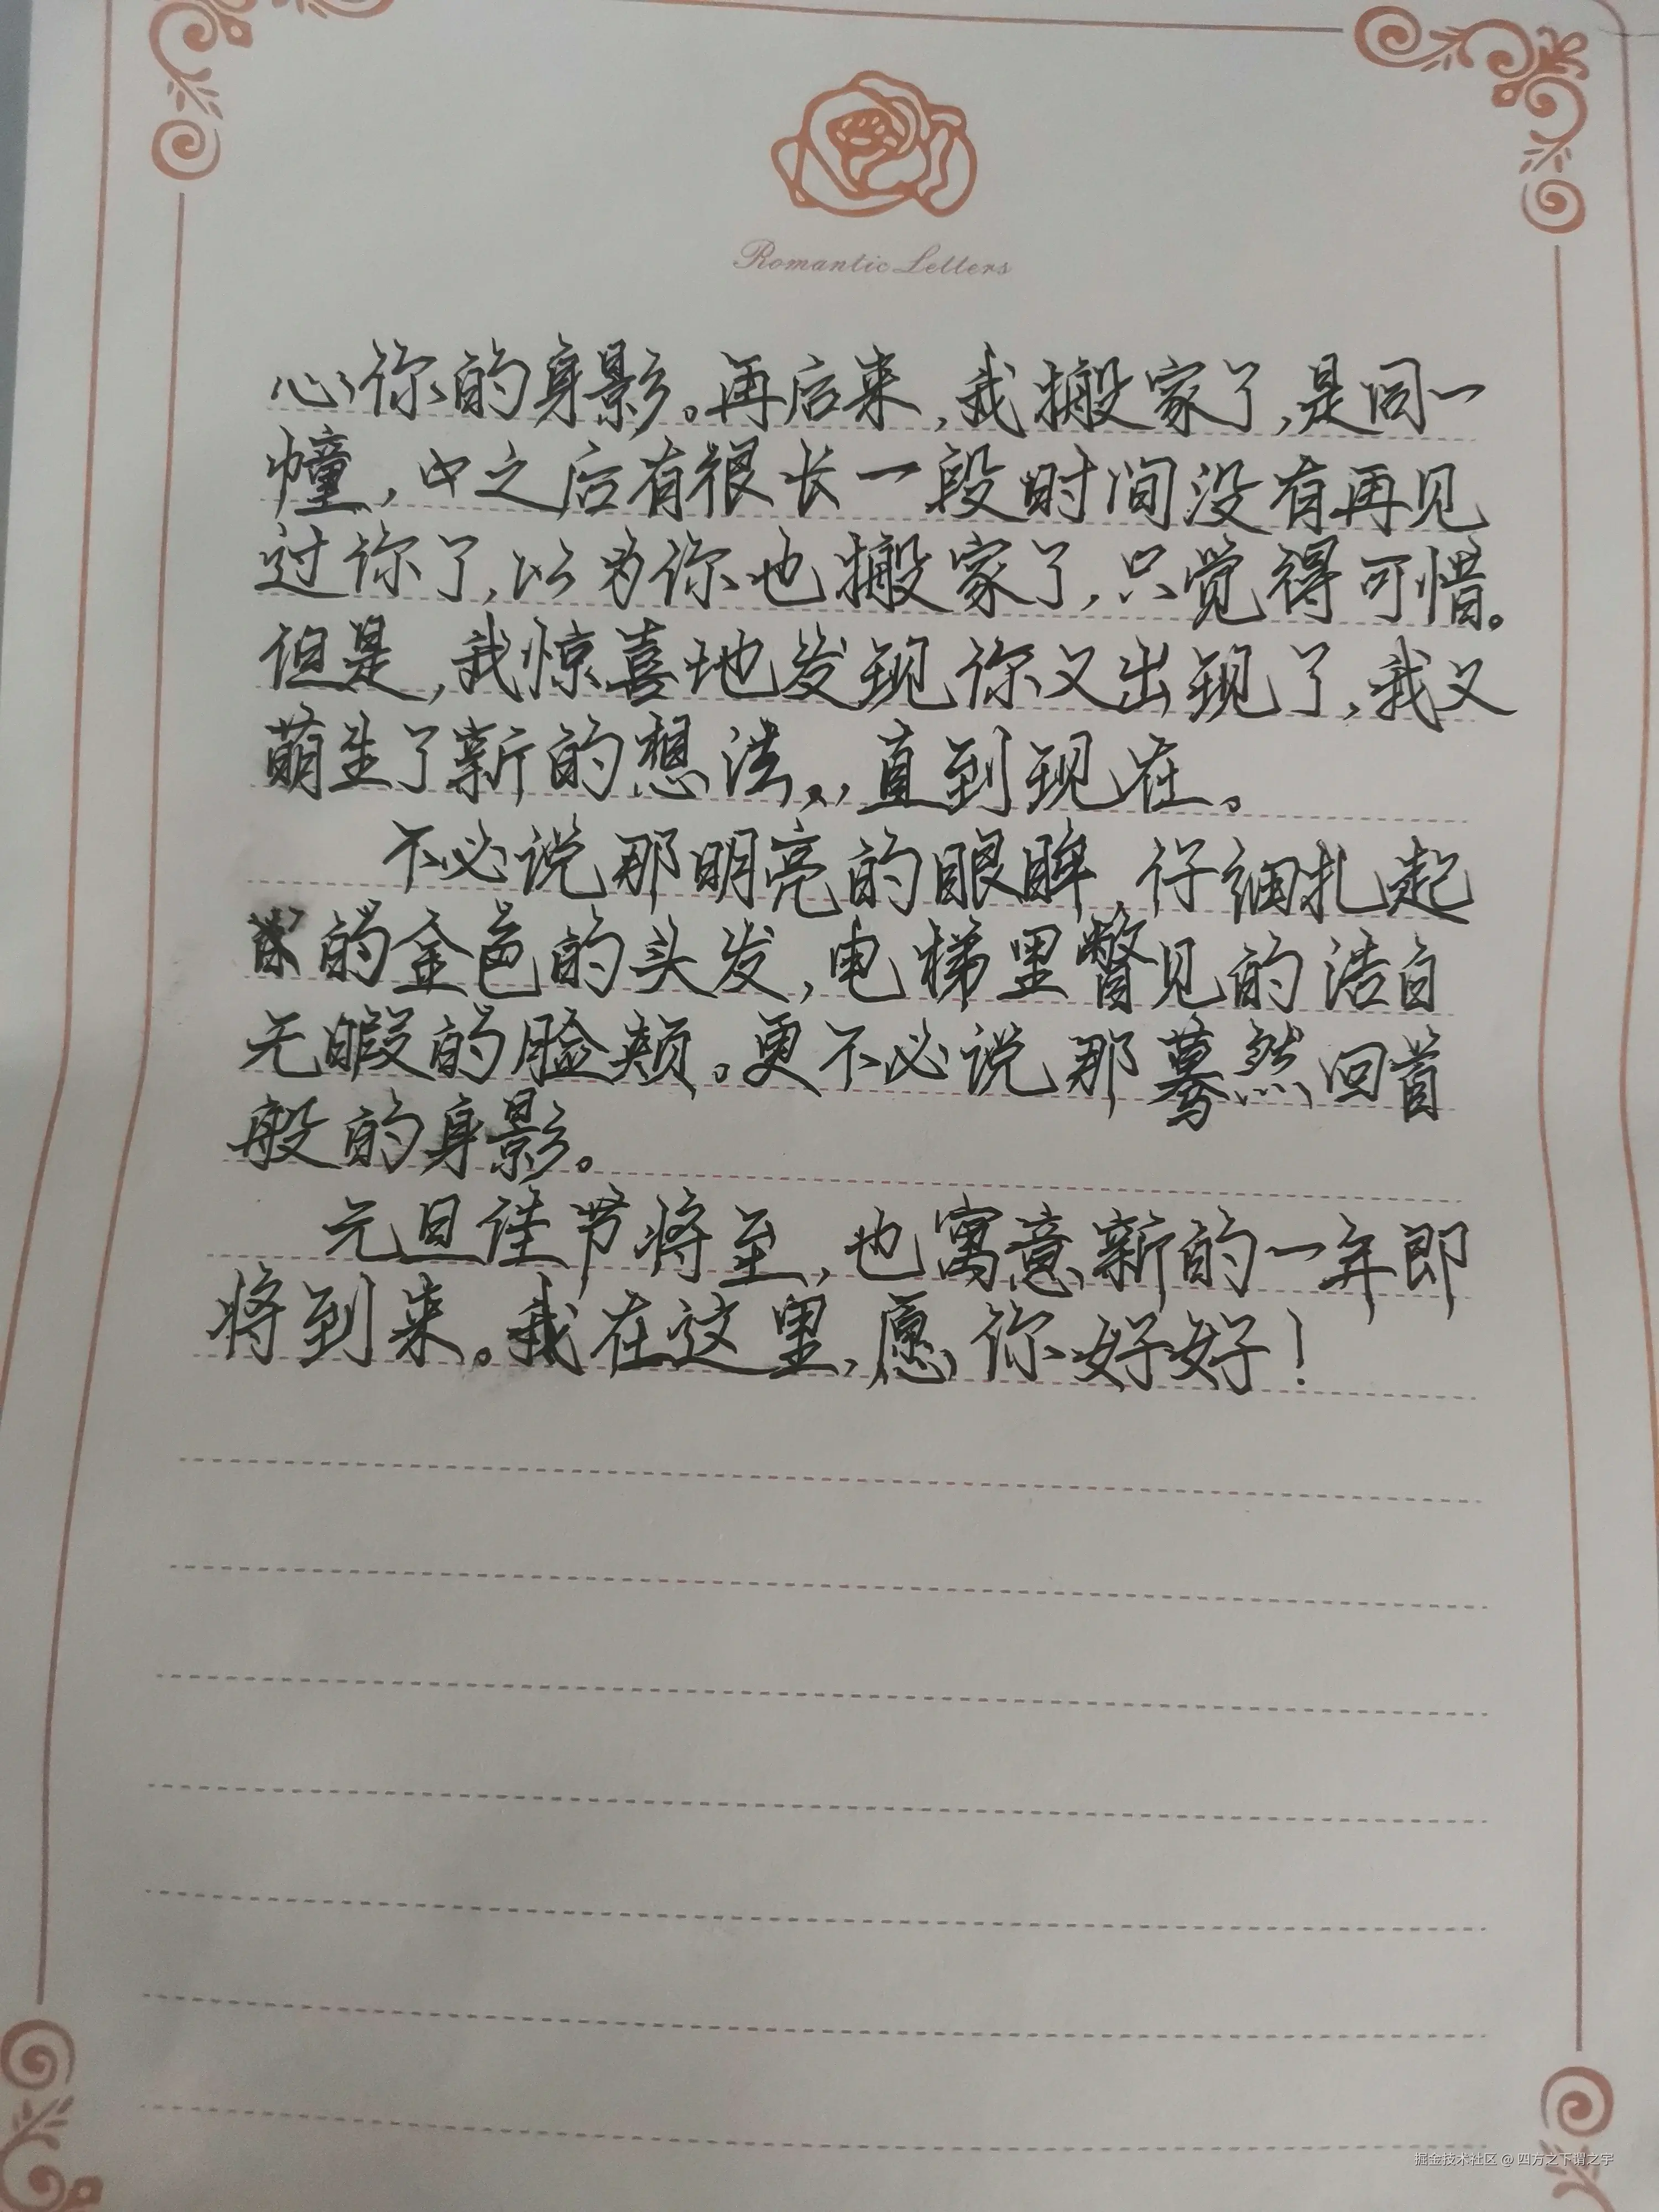 Romantic Letters
心你的身影。再后来,我搬家了,是同一
幢,中之后有很长一段时间没有再见
过你了,以为你也搬家了,只觉得可惜。
但是,我惊喜地发现你又出现了,我又
萌生了新的想法,直到现在。
不必说那明亮的眼眸,仔细扎起
的金色的头发,电梯里瞥见的洁白
无暇的脸颊。更不必说那蓦然回首
般的身影。
元旦佳节将至,也寓意新的一年即
将到来。我在这里,愿你好好!
掘金技术社区 @ 四方之下谓之宇